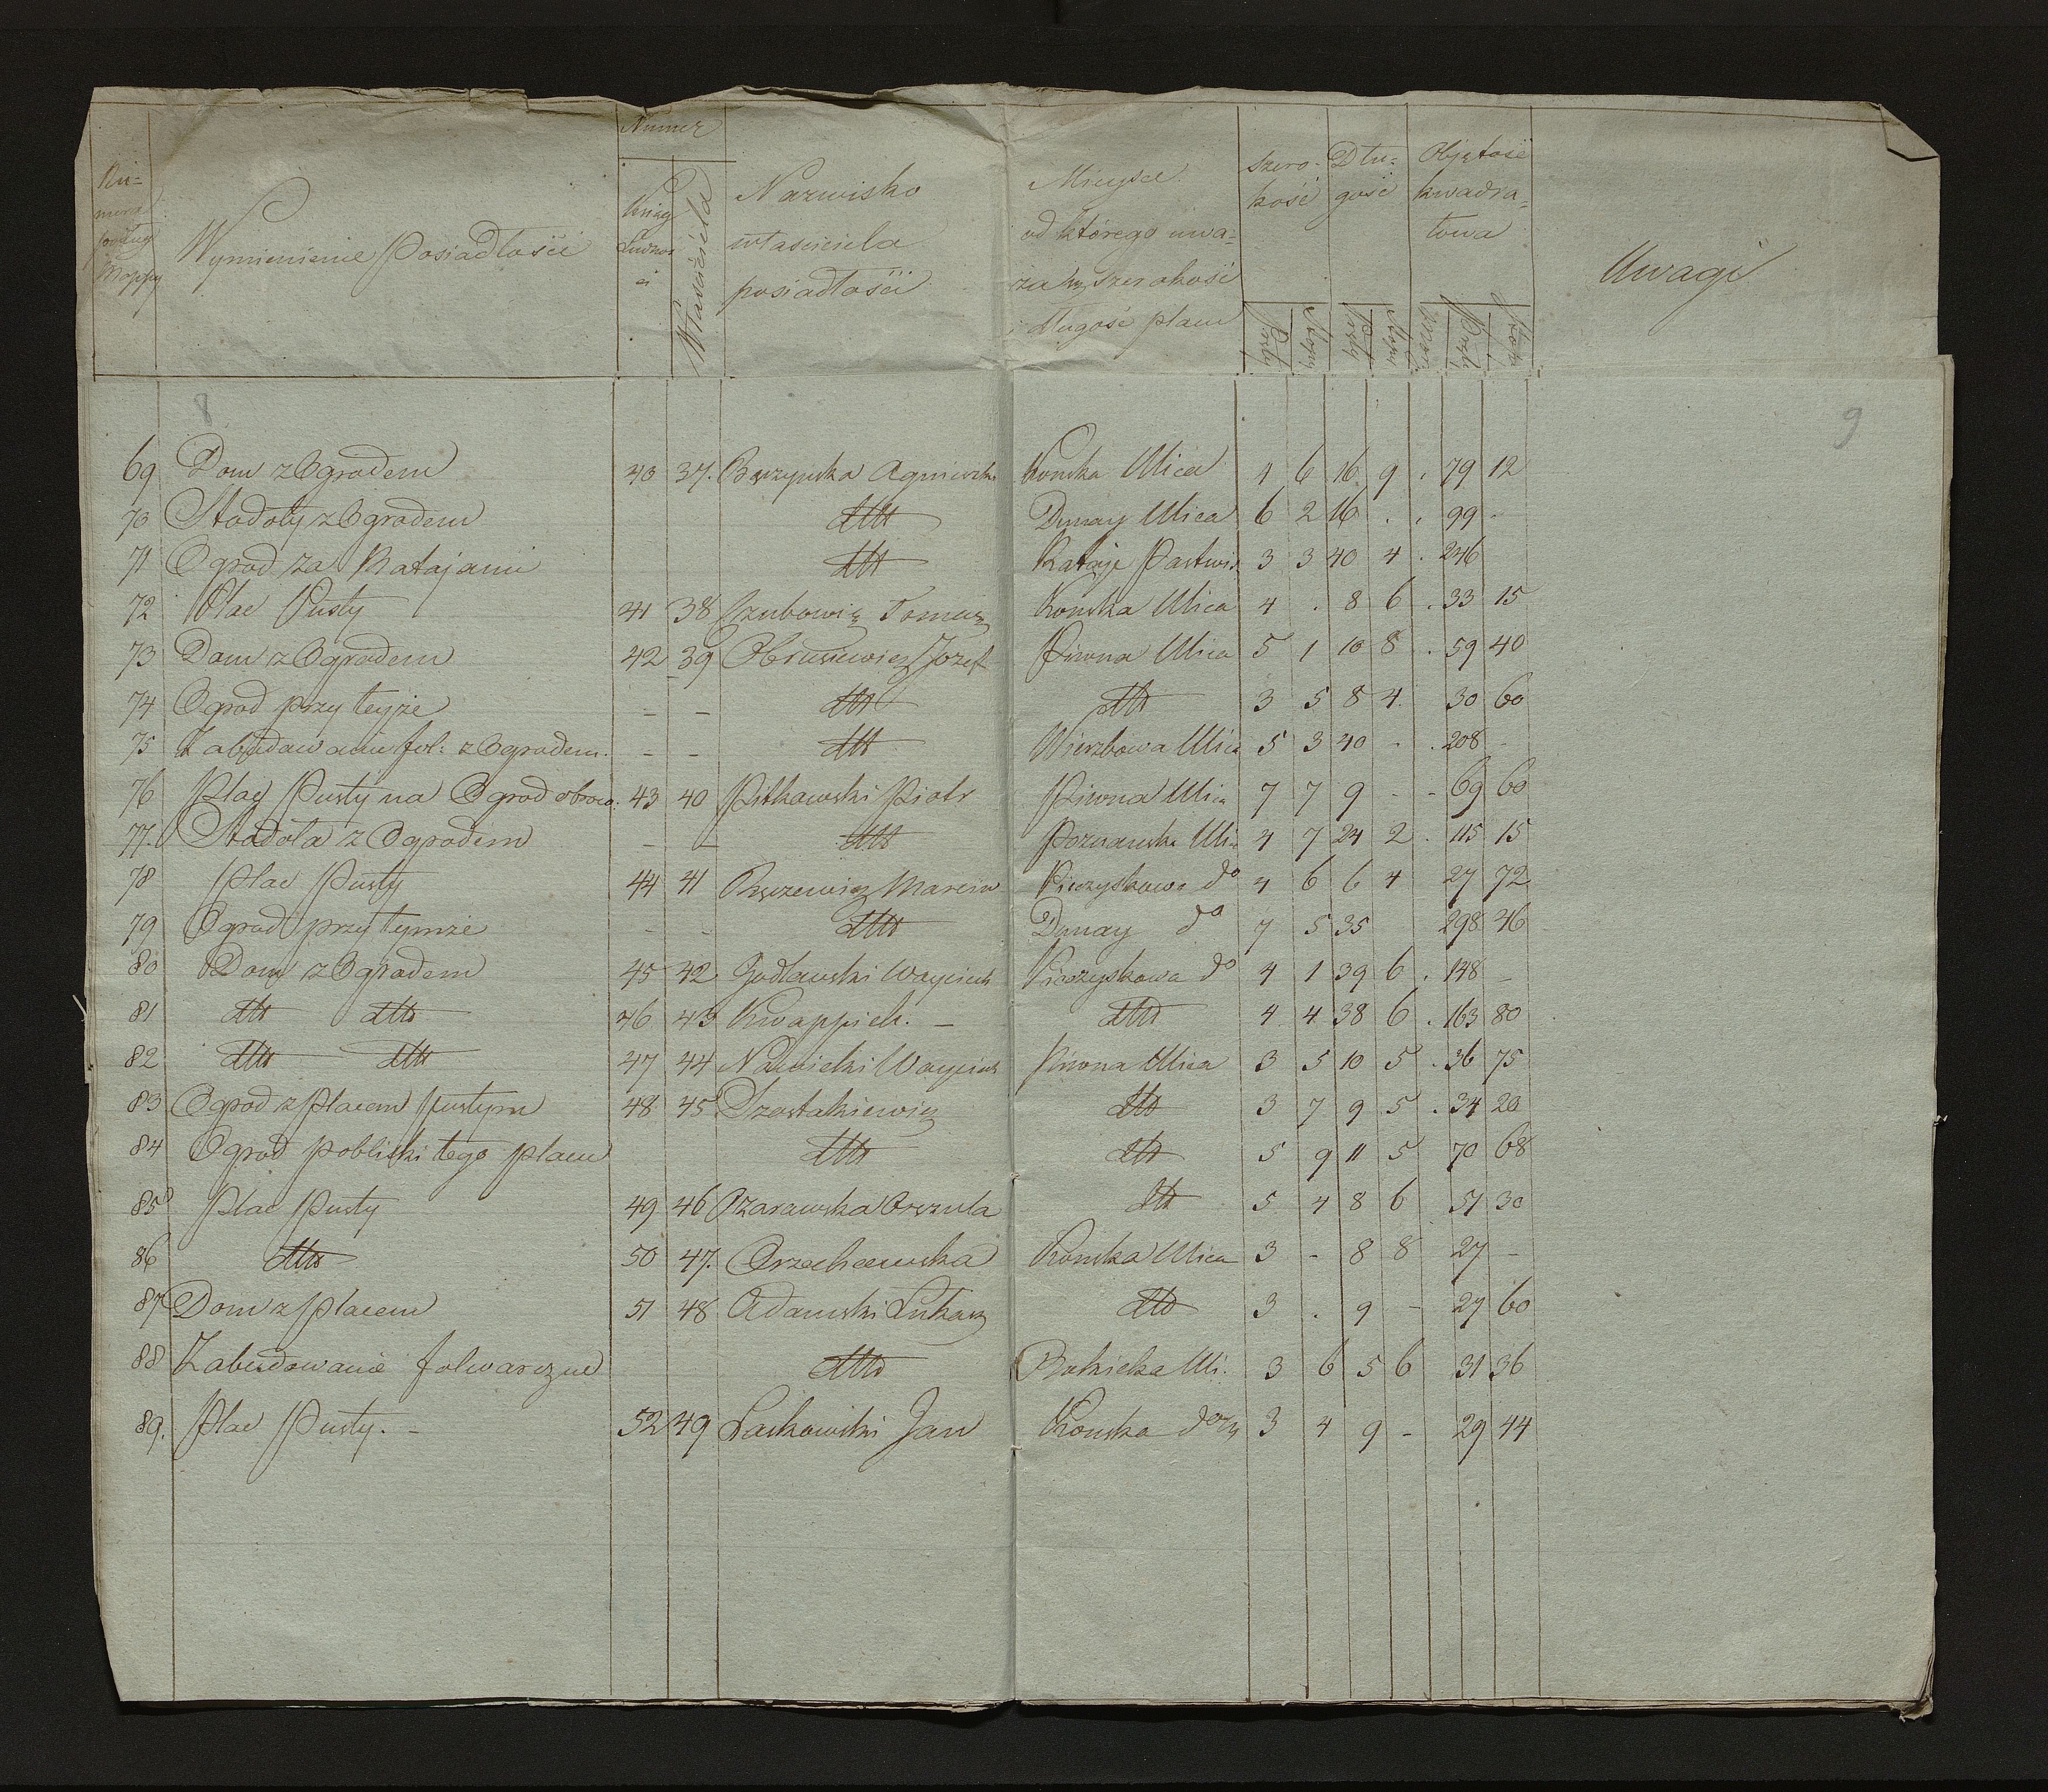 Nu=
mera
podług
Mappy
Wymienienie Posiadłości
Numer
Księg
Ludnoś
ci
Własciciela
Nazwisko
własciciela
posiadłości
Mieysce
od którego uwa=
za się szerokość
i długość placu
Szero=
kość
Dłu=
gość
Objętość
kwadra=
towa
Uwagi
Pręty Stopy Pręty Stopy Morgi Pręty Stopy
8
9
69 Dom z Ogrodem 40 37. Agnieszka Konska Ulica 4 6 16 9 . 79 12
70 Stodoły z Ogrodem dtto Dunay Ulica 6 2 16 . . 99 -
71 Ogrod za Ratajami dtto Rataje Pastwis 3 3 40 4 . 246
72 Plac Pusty 41 38 Czubowicz Tomasz Konska Ulica 4 . 8 6 . 33 15
73 Dom z Ogrodem 42 39 Jozef Piwna Ulica 5 1 10 8 . 59 40
74 Ogrod przy teyże - - dtto dtto 3 5 8 4. 30 60
75 Zabudowanie fol: z Ogrodem. - - dtto Wierzbowa Ulica 5 3 40 - . 208 -
76 Plac Pusty na Ogrod obroco. 43 40 Pitkowski Piotr Piwna Ulica 7 7 9 - - 69 60
77. Stodoła z Ogrodem - - dtto Poznanska Uli- 4 7 24 2 . 115 15
78 Plac Pusty 44 41 Ręczewicz Marcin Pieczyskowa do 4 6 6 4 27 72
79 Ogrod przy tymże - - dtto Dunay do 7 5 35 298 46
80 Dom z Ogrodem 45 42 Jodłowski Wayciech Pieczyskowa do 4 1 39 6 . 148 -
81 dtto dtto 46 43 Kwappich. - dtto 4 4 38 6 . 163 80
82 dtto dtto 47 44 Nawicki Wayciech Piwna Ulica 3 5 10 5 . 36 75
83 Ogrod z Placem Pustym 48 45 Szostakiewicz dtto 3 7 9 5 . 34 20
84 Ogrod pobliski tego placu dtto dtto 5 9 11 5 70 68
85 Plac Pusty 49 46 Ozarowska Orszula dtto 5 4 8 6 51 30
86 dtto 50 47. Orzechowska Konska Ulica 3 - 8 8 27 -
87 Dom z Placem 51 48 Adamski Łukasz dtto 3 . 9 - 27 60
88 Zabudowanie folwarczne dtto Uli. 3 6 5 6 31 36
89. Plac Pusty. - 52 49 Laskowski Jan Konska 3 4 9 - 29 44